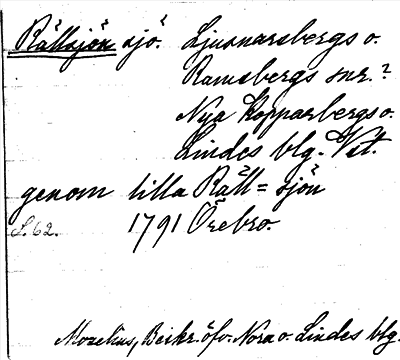 Rällsjön sjö. Ljusnarsbergs o.
Ramsbergs snr.?
Nya Kopparbergs o.
Lindes blg. Vst.
genom lilla Räll=sjön
S.62. 1791 Örebro.
Mozelius, Beskr. öfv. Nora o. Lindes blg.